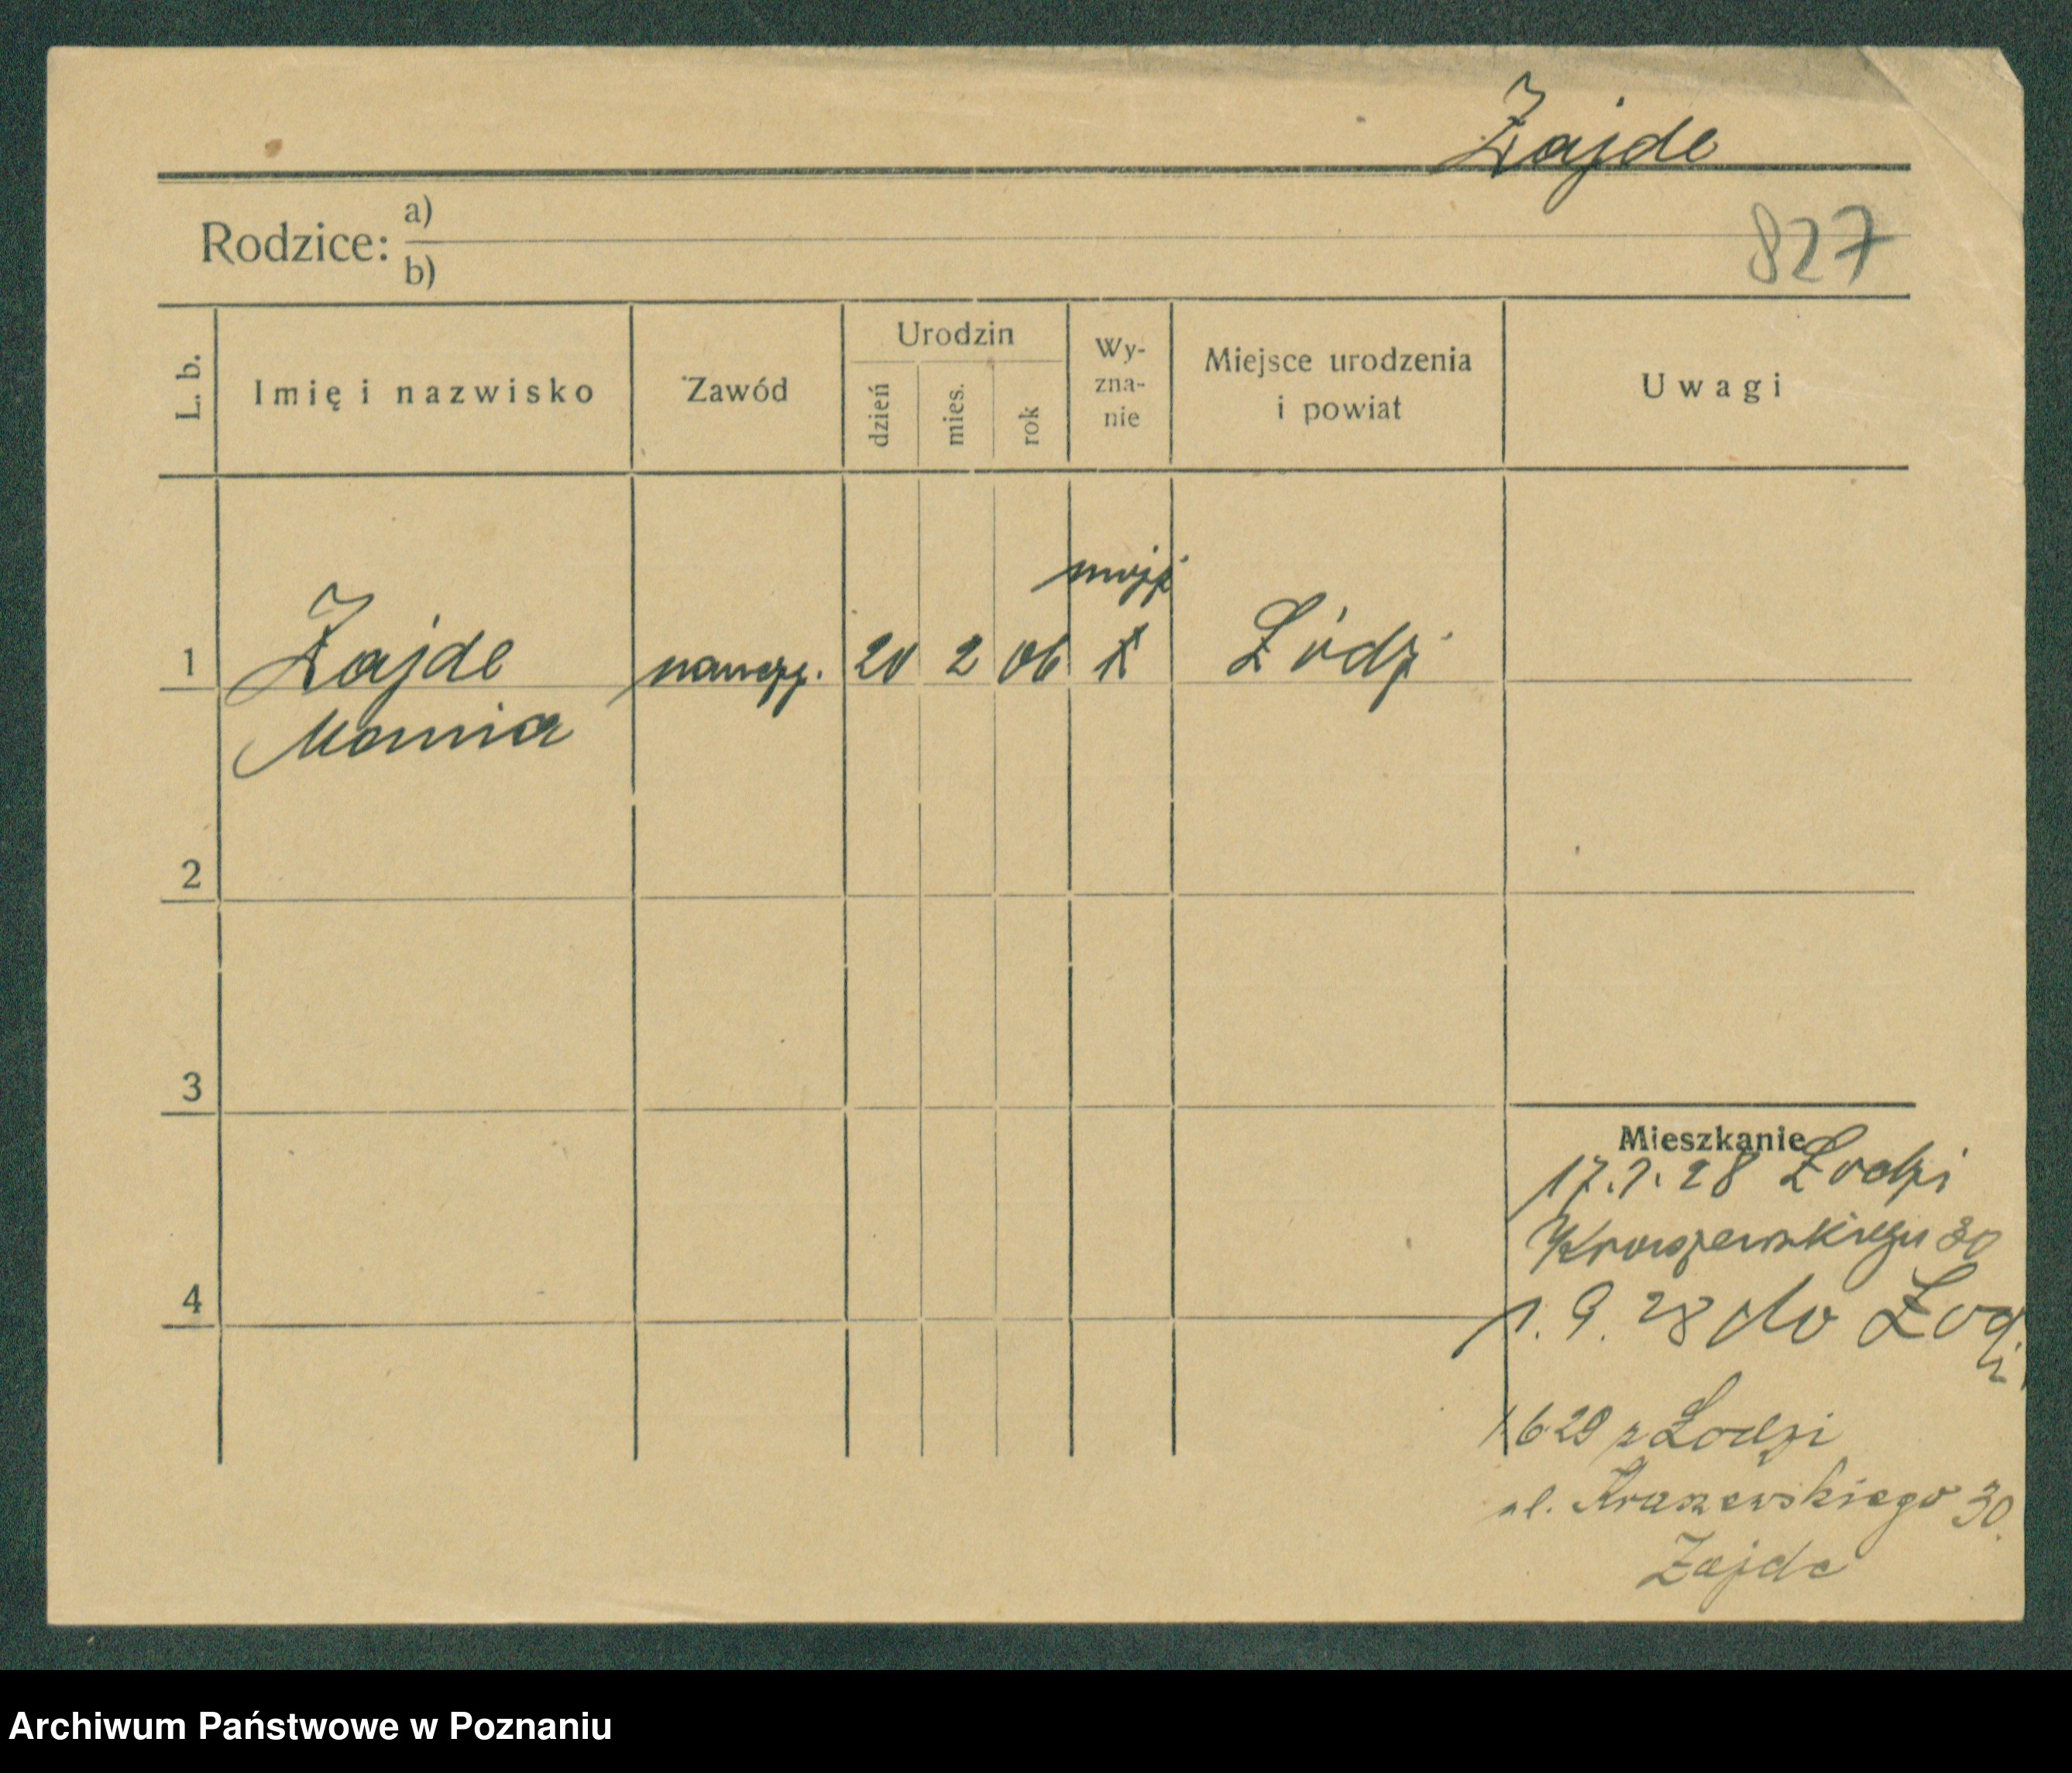 Zajde
827
Rodzice: a)
b)
L. b.
Imię i nazwisko
Zawód
Urodzin
dzień mies. rok
Wy-
zna-
nie
Miejsce urodzenia
i powiat
Uwagi
mojż
1 Zajde naucz. 20 2 06 Łódź
Mania
2
3
4
Mieszkanie
17.7.28 Łodzi
Kraszewskiego 30
1.9.28 do Łodzi
1 6 29 z Łodzi
ul. Kraszewskiego 30.
Zajde
Archiwum Państwowe w Poznaniu